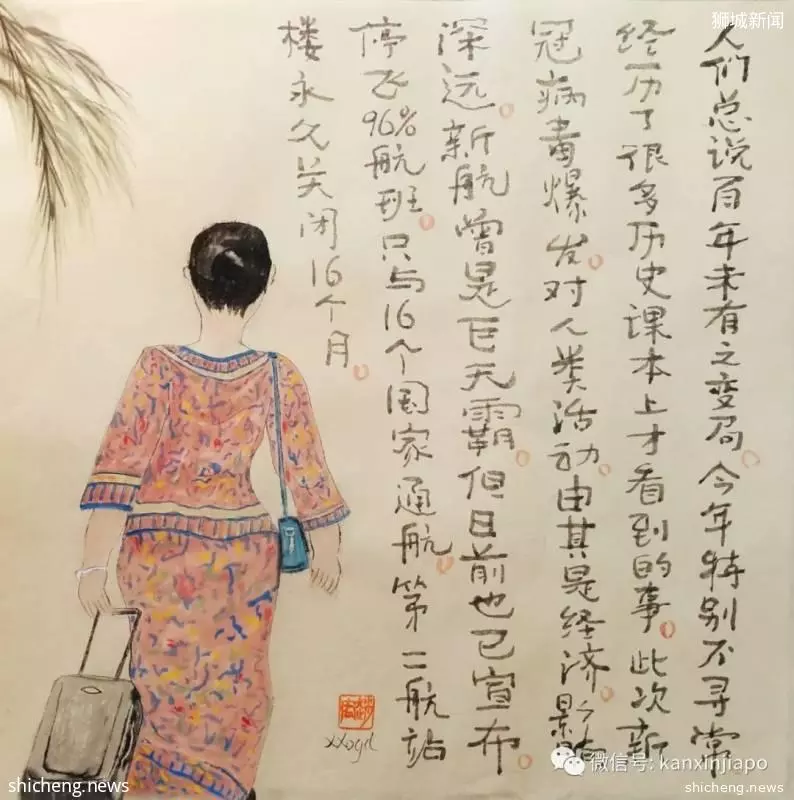 狮城新闻
人们总说百年未有之变局。今年特别不寻常
经历了很多历史课本上才看到的事。此次新
冠病毒爆发。对人类活动。由其是经济。影响
深远。新航曾是巨无霸。但日前也已宣布。
停飞96%航班。只与16个国家通航。第二航站
楼永久关闭16个月。
微信号: kanxinjiapo
shicheng.news
shicheng.news